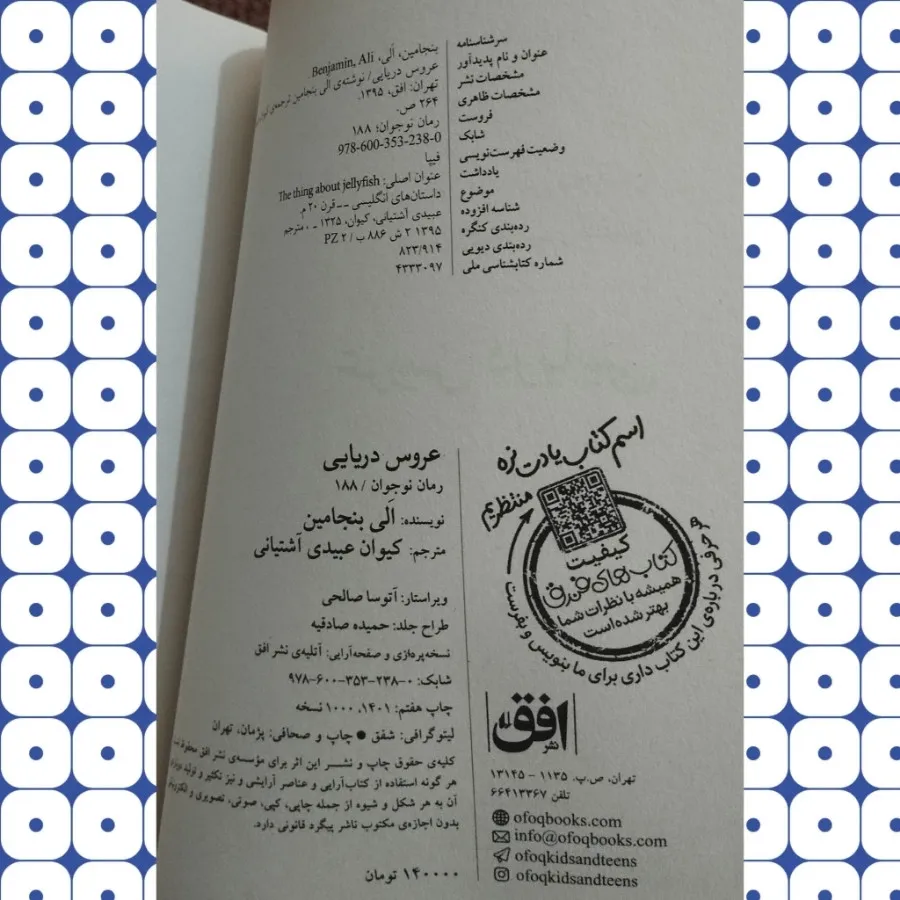 سرشناسه بنجامین، اَلی، Benjamin, Ali.
عنوان و نام پدیدآور عروس دریایی/ نوشته‌ی الی بنجامین ترجمه‌ی
مشخصات نشر تهران: افق، ۱۳۹۵.
مشخصات ظاهری ۲۶۴ ص.
فروست رمان نوجوان؛ ۱۸۸
شابک 978-600-353-238-0
وضعیت فهرست‌نویسی فیپا
یادداشت عنوان اصلی: The thing about jellyfish
موضوع داستان‌های انگلیسی -- قرن ۲۰ م.
شناسه افزوده عبیدی آشتیانی، کیوان، ۱۳۲۵ - ، مترجم
رده‌بندی کنگره ۱۳۹۵ ۲ ش ۸۸۶ ب / PZ ۲
رده‌بندی دیویی ۸۲۳/۹۱۴
شماره کتابشناسی ملی ۴۳۳۳۰۹۷
عروس دریایی
رمان نوجوان / ۱۸۸
نویسنده: اَلی بنجامین
مترجم: کیوان عبیدی آشتیانی
ویراستار: آتوسا صالحی
طراح جلد: حمیده صادقیه
نسخه‌پردازی و صفحه‌آرایی: آتلیه‌ی نشر افق
شابک: ۰-۲۳۸-۳۵۳-۶۰۰-۹۷۸
چاپ هفتم: ۱۴۰۱، ۱۰۰۰ نسخه
لیتوگرافی: شفق ● چاپ و صحافی: پژمان، تهران
کلیه‌ی حقوق چاپ و نشر این اثر برای مؤسسه‌ی نشر افق محفوظ است
هر گونه استفاده از کتاب‌آرایی و عناصر آرایشی و نیز تکثیر و تولید
آن به هر شکل و شیوه از جمله چاپی، کپی، صوتی، تصویری و
بدون اجازه‌ی مکتوب ناشر پیگرد قانونی دارد.
۱۴۰۰۰۰ تومان
اسم کتاب یادت نره
منتظریم
کیفیت
کتاب‌های فندق
همیشه با نظرات شما
بهتر شده است
هر حرفی درباره‌ی این کتاب داری برای ما بنویس و بفرست
نشر افق
تهران، ص.پ. ۱۱۳۵ - ۱۳۱۴۵
تلفن ۶۶۴۱۳۳۶۷
ofoqbooks.com
info@ofoqbooks.com
ofoqkidsandteens
ofoqkidsandteens